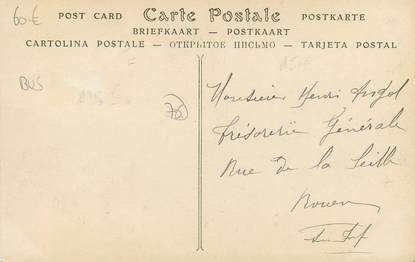 60-€
POST CARD Carte Postale POSTKARTE
BRIEFKAART — POSTKAART
CARTOLINA POSTALE — ОТКРЫТОЕ ПИСЬМО — TARJETA POSTAL
BUS
76
Monsieur Henri
Trésorerie Générale
Rue de la Seille
Rouen